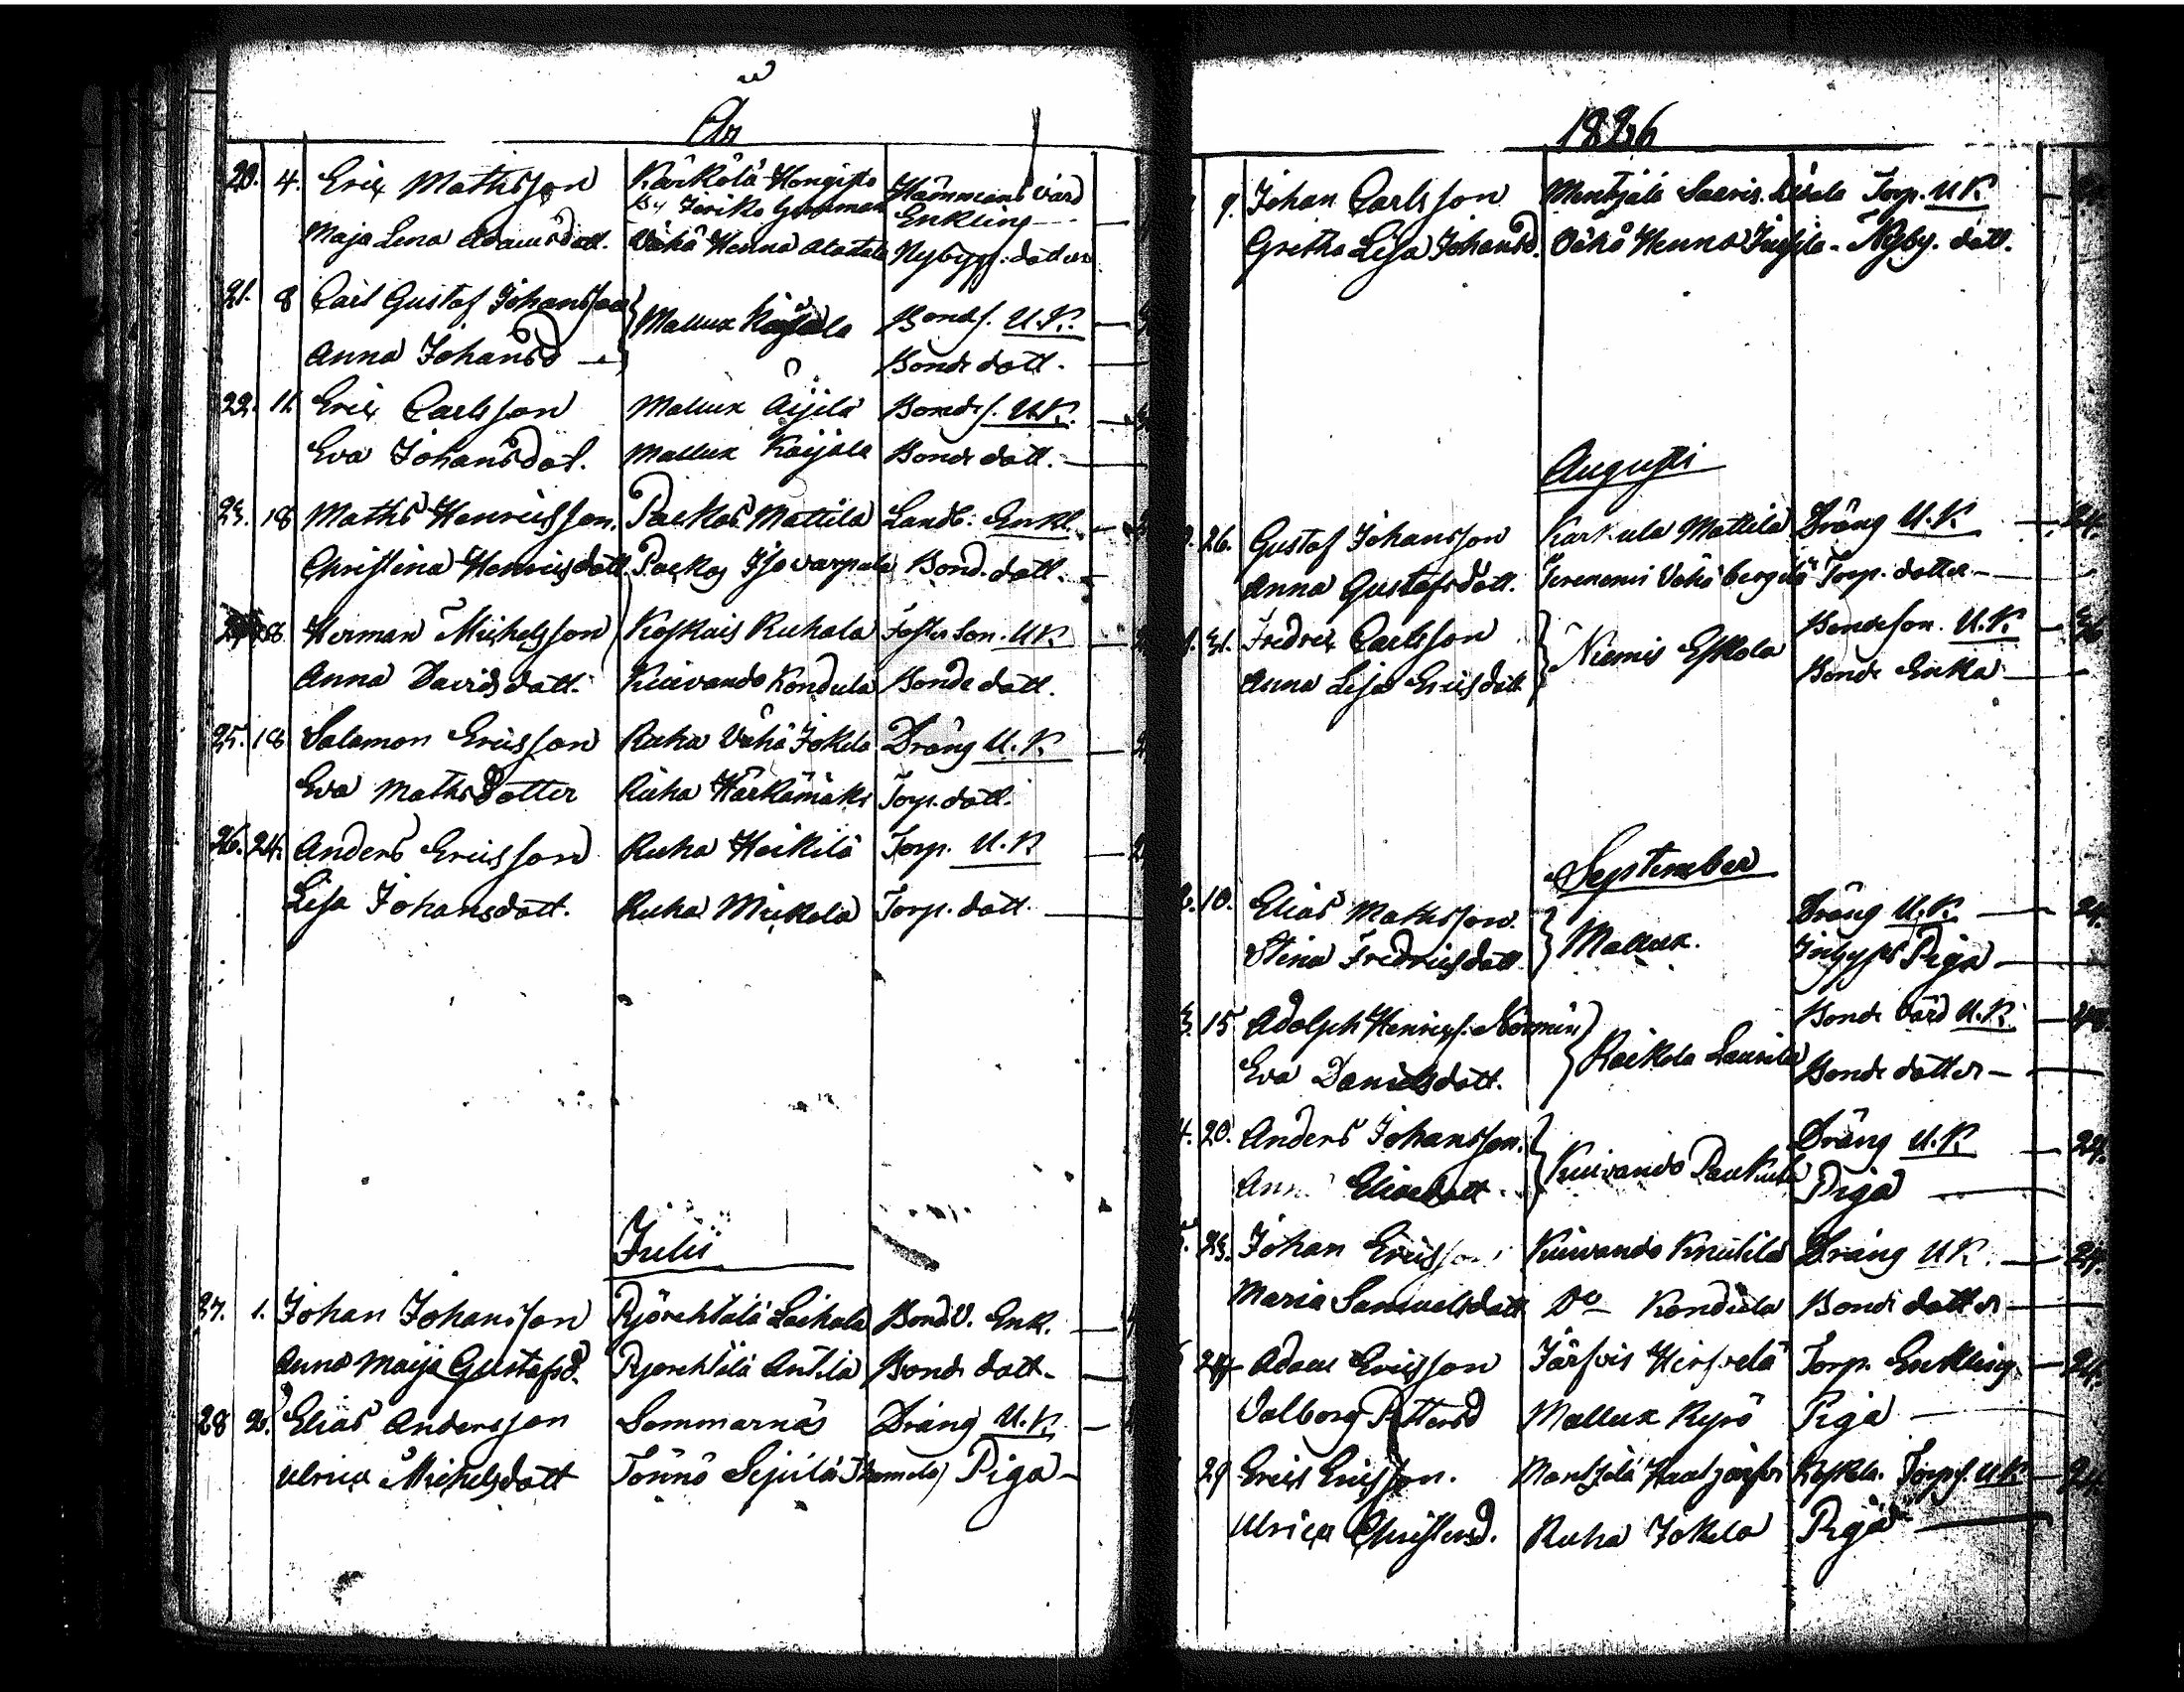 År
20. 4. Eric Mathsson Kärkölä Hongisto Hämmeans Värd
Enkling
Maja Lena Adamsdott. Vähä Henna Alastalo Nybygg. dotter
21. 8 Carl Gustaf Johansson Mallux Bonds. U.K.
Anna Johansd Bonde dott.
22. 11. Eric Carlsson Mallux Äijälä Bondes. U.K.
Eva Johansdot. Mallux Kaijala Bonde dott.
23. 18 Maths Henricsson. Packas Mattila Landb. Enkl.
Christina Henricsdott. Packas Isovarpula Bond. dott.
18 Herman Michelsson Koskais Ruhala Foster Son. U.K.
Anna Davidsdott. Kuivando Kondula Bonde dott.
25. 18 Salomon Ericsson Ruha Vähä Jokela Dräng U.K.
Eva Mathsdotter Ruha Härkämäki Torp. dott.
26. 24. Anders Ericsson Ruha Heikilä Torp. U.K.
Lisa Johansdott. Ruha Mickola Torp. dott.
Julii
27. 1. Johan Johansson Pyörehtälä Laihala Bond. V. Enk.
Anna Maija Gustafsd. Pyörehtälä Antila Bonde dott.
28 2. Elias Andersson Sommarnäs Dräng U.K.
Ulrica Michelsdott Tönnö Sepälä Piga
1826
9. Johan Carlsson Mentjälä Saaris. Torp. U.K.
Gretha Lisa Johansd. Vähä Henna Nyby. dott.
Augusti
26. Gustaf Johansson Karkula Mattila Dräng U.K. 24.
Anna Gustafsdott. Vähä Torp. dotter
31. Fredric Carlsson Niemis Eskola Bondeson. U.K.
Anna Lisa Ericsdott Bonde Enka
September
10. Elias Mathsson. Mallux. Dräng U.K. 24.
Stina Fredricsdott Inhyses Piga
15 Adolph Henrics. Raekola Laurila Bonde Värd U.K.
Eva Danielsdott. Bonde dotter
20. Anders Johansson. Kuivando Paukula Dräng U.K. 24.
Anna Eliaedott Piga
23. Johan Ericsson Kuivando Knutila Dräng U.K. 24.
Maria Samuelsdott Do Kondula Bonde dotter
24 Adam Ericsson Järfvis Hirfvelä Torp. Enkling 24.
Valborg Pettersd Mallux Kyrö Piga
29 Eric Ericsson. Mentjälä Haatjärfvi Koskela. Torps. U.K. 24.
Ulrica Christersd. Ruha Jokela Piga